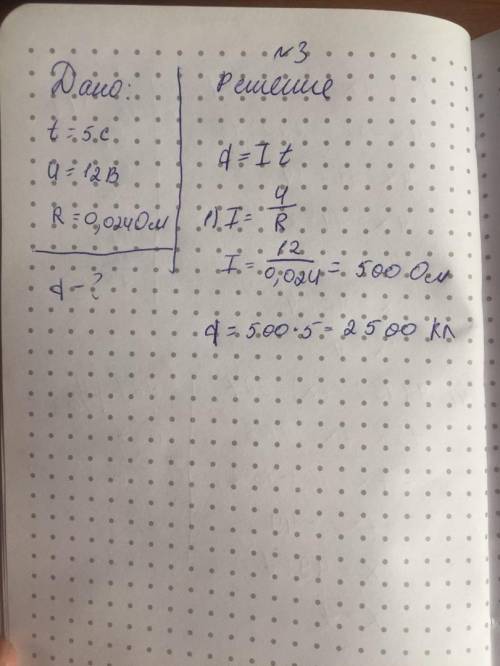 №3
Дано:
t = 5 с
U = 12 В
R = 0,024 Ом
q - ?
Решение
q = I t
1) I = U/R
I = 12/0,024 = 500 Ом
q = 500 · 5 = 2500 Кл